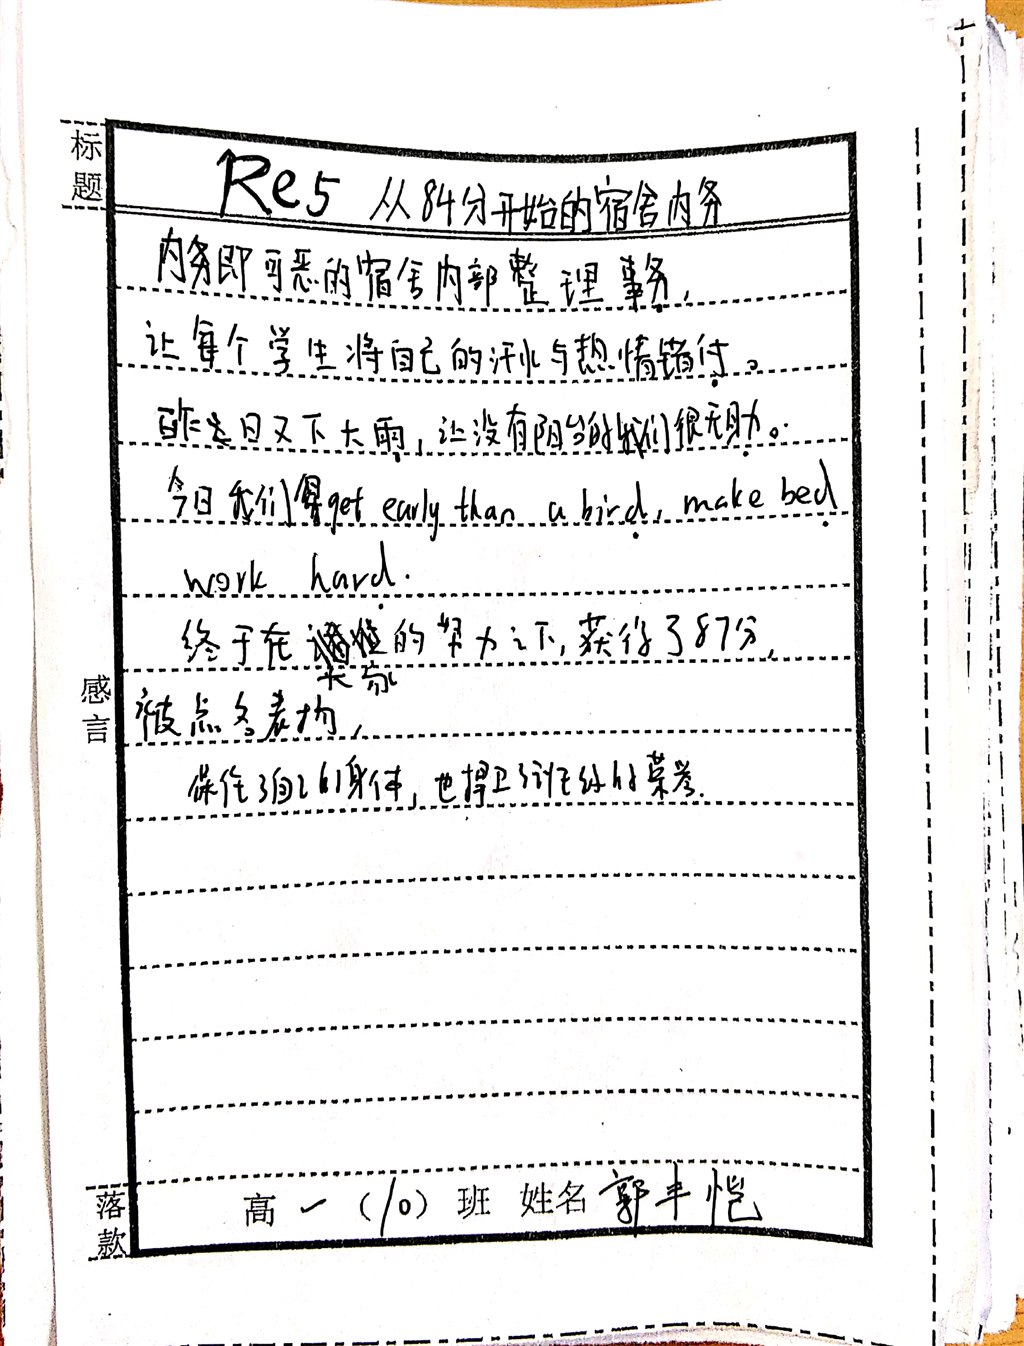 标题
Re5 从84分开始的宿舍内务
内务即可恶的宿舍内部整理事务,
让每个学生将自己的汗水与热情错付。
昨日又下大雨,让没有阳台的我们很无助。
今日我们get early than a bird, make bed
work hard.
终于在大家的努力之下,获得了87分,
被点名表扬,
保住了自己的身体,也捍卫了班级的荣誉.
感言
落款
高一(10)班 姓名 郭丰恺